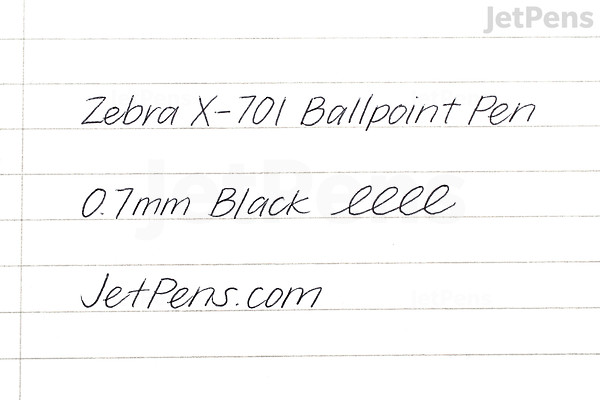 JetPens
Zebra X-701 Ballpoint Pen
0.7mm Black
JetPens.com
JetPens